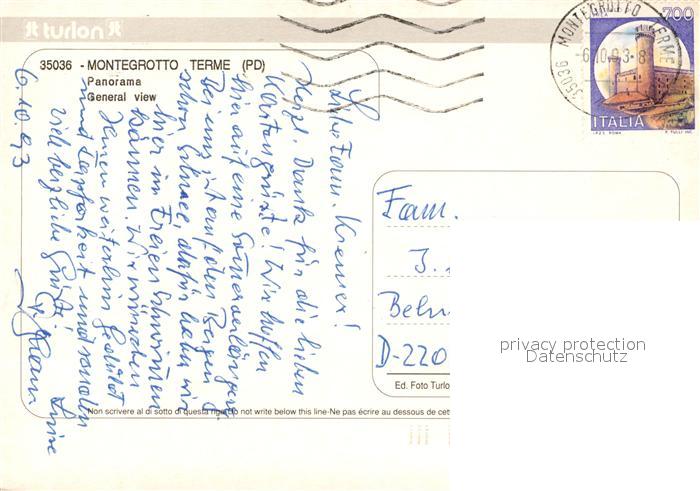 turlon
35036 - MONTEGROTTO TERME (PD)
Panorama
General view
6.10.93
Liebe Famm. Kremer!
Herzl. Dank für die lieben
Kartengrüße! Wir hoffen
hier auf eine Sommerverlängerg
Bei uns ist auf den Bergen
schon Schnee, dafür haben wir
hier im Freien schwimmen
können. Wir wünschen
Ihnen weiterhin Geduld
und Tapferkeit und senden
viele herzliche Grüße!
Luise
700
ITALIA
I.P.Z.S. ROMA
P. TULLI INC.
35036 MONTEGROTTO TERME
-6.10.93-8
Fam.
J.
Belm
D-220
privacy protection
Datenschutz
Ed. Foto Turlo
Non scrivere al di sotto di questa riga-Do not write below this line-Ne pas écrire au dessous de cett